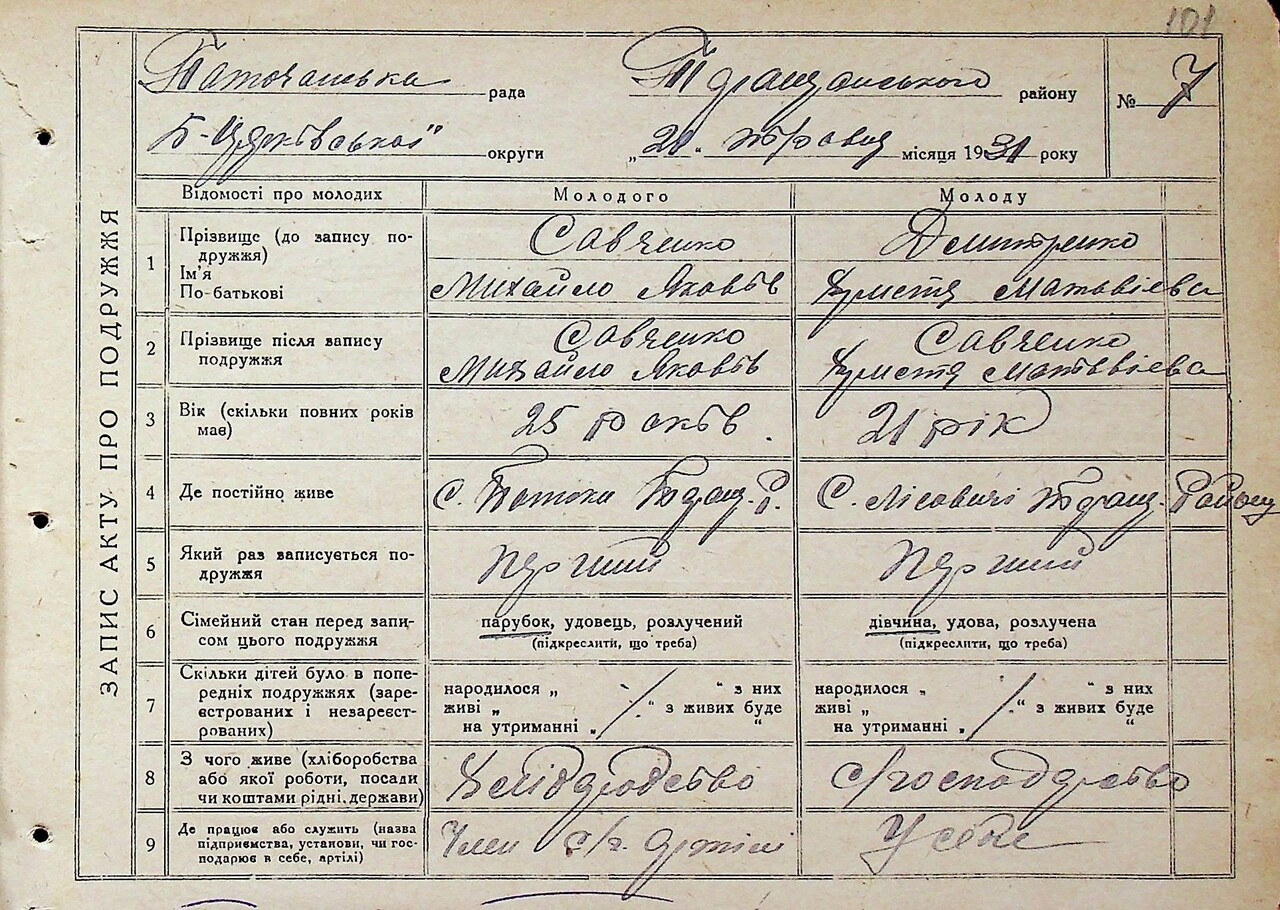 101
Потоцська рада Таращанського району № 7
Б-Церківської округи „21“ травня місяця 1931 року
ЗАПИС АКТУ ПРО ПОДРУЖЖЯ
Відомості про молодих Молодого Молоду
1 Прізвище (до запису по- Савченко Дмитренко
дружжя)
Ім'я
По-батькові Михайло Яковів Христя Матвієва
2 Прізвище після запису Савченко Савченко
подружжя Михайло Яковів Христя Матвієва
3 Вік (скільки повних років 25 років. 21 рік
має)
4 Де постійно живе С. Потоки Таращ. Р. С. Лісовичі Таращ. Району
5 Який раз записується по- Перший Перший
дружжя
6 Сімейний стан перед запи- парубок, удовець, розлучений дівчина, удова, розлучена
сом цього подружжя (підкреслити, що треба) (підкреслити, що треба)
7 Скільки дітей було в попе- народилося „ “ з них народилося „ “ з них
редніх подружжях (заре- живі „ “ з живих буде живі „ “ з живих буде
єстрованих і незареєст- на утриманні „ “ на утриманні „ “
рованих)
8 З чого живе (хліборобства Хліборобство с/господарство
або якої роботи, посади
чи коштами рідні, держави)
9 Де працює або служить (назва Член с/г. артілі У себе
підприємства, установи, чи гос-
подарює в себе, артілі)